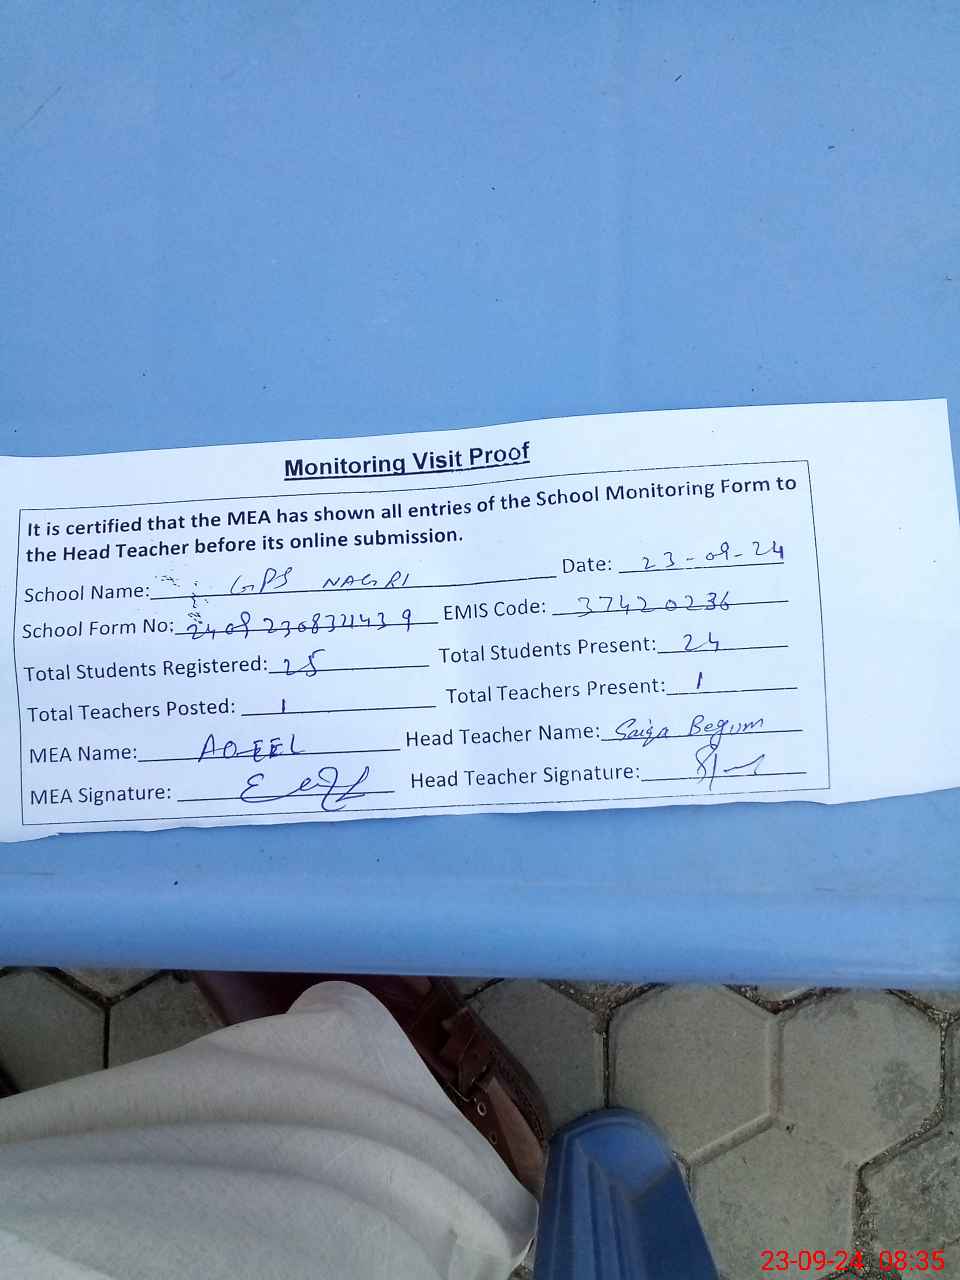 Monitoring Visit Proof
It is certified that the MEA has shown all entries of the School Monitoring Form to
the Head Teacher before its online submission.
School Name: GPS NAGRI Date: 23-09-24
School Form No: EMIS Code: 37420236
Total Students Registered: 25 Total Students Present: 24
Total Teachers Posted: 1 Total Teachers Present: 1
MEA Name: AQEEL Head Teacher Name: Saiqa Begum
MEA Signature: Head Teacher Signature:
23-09-24 08:35